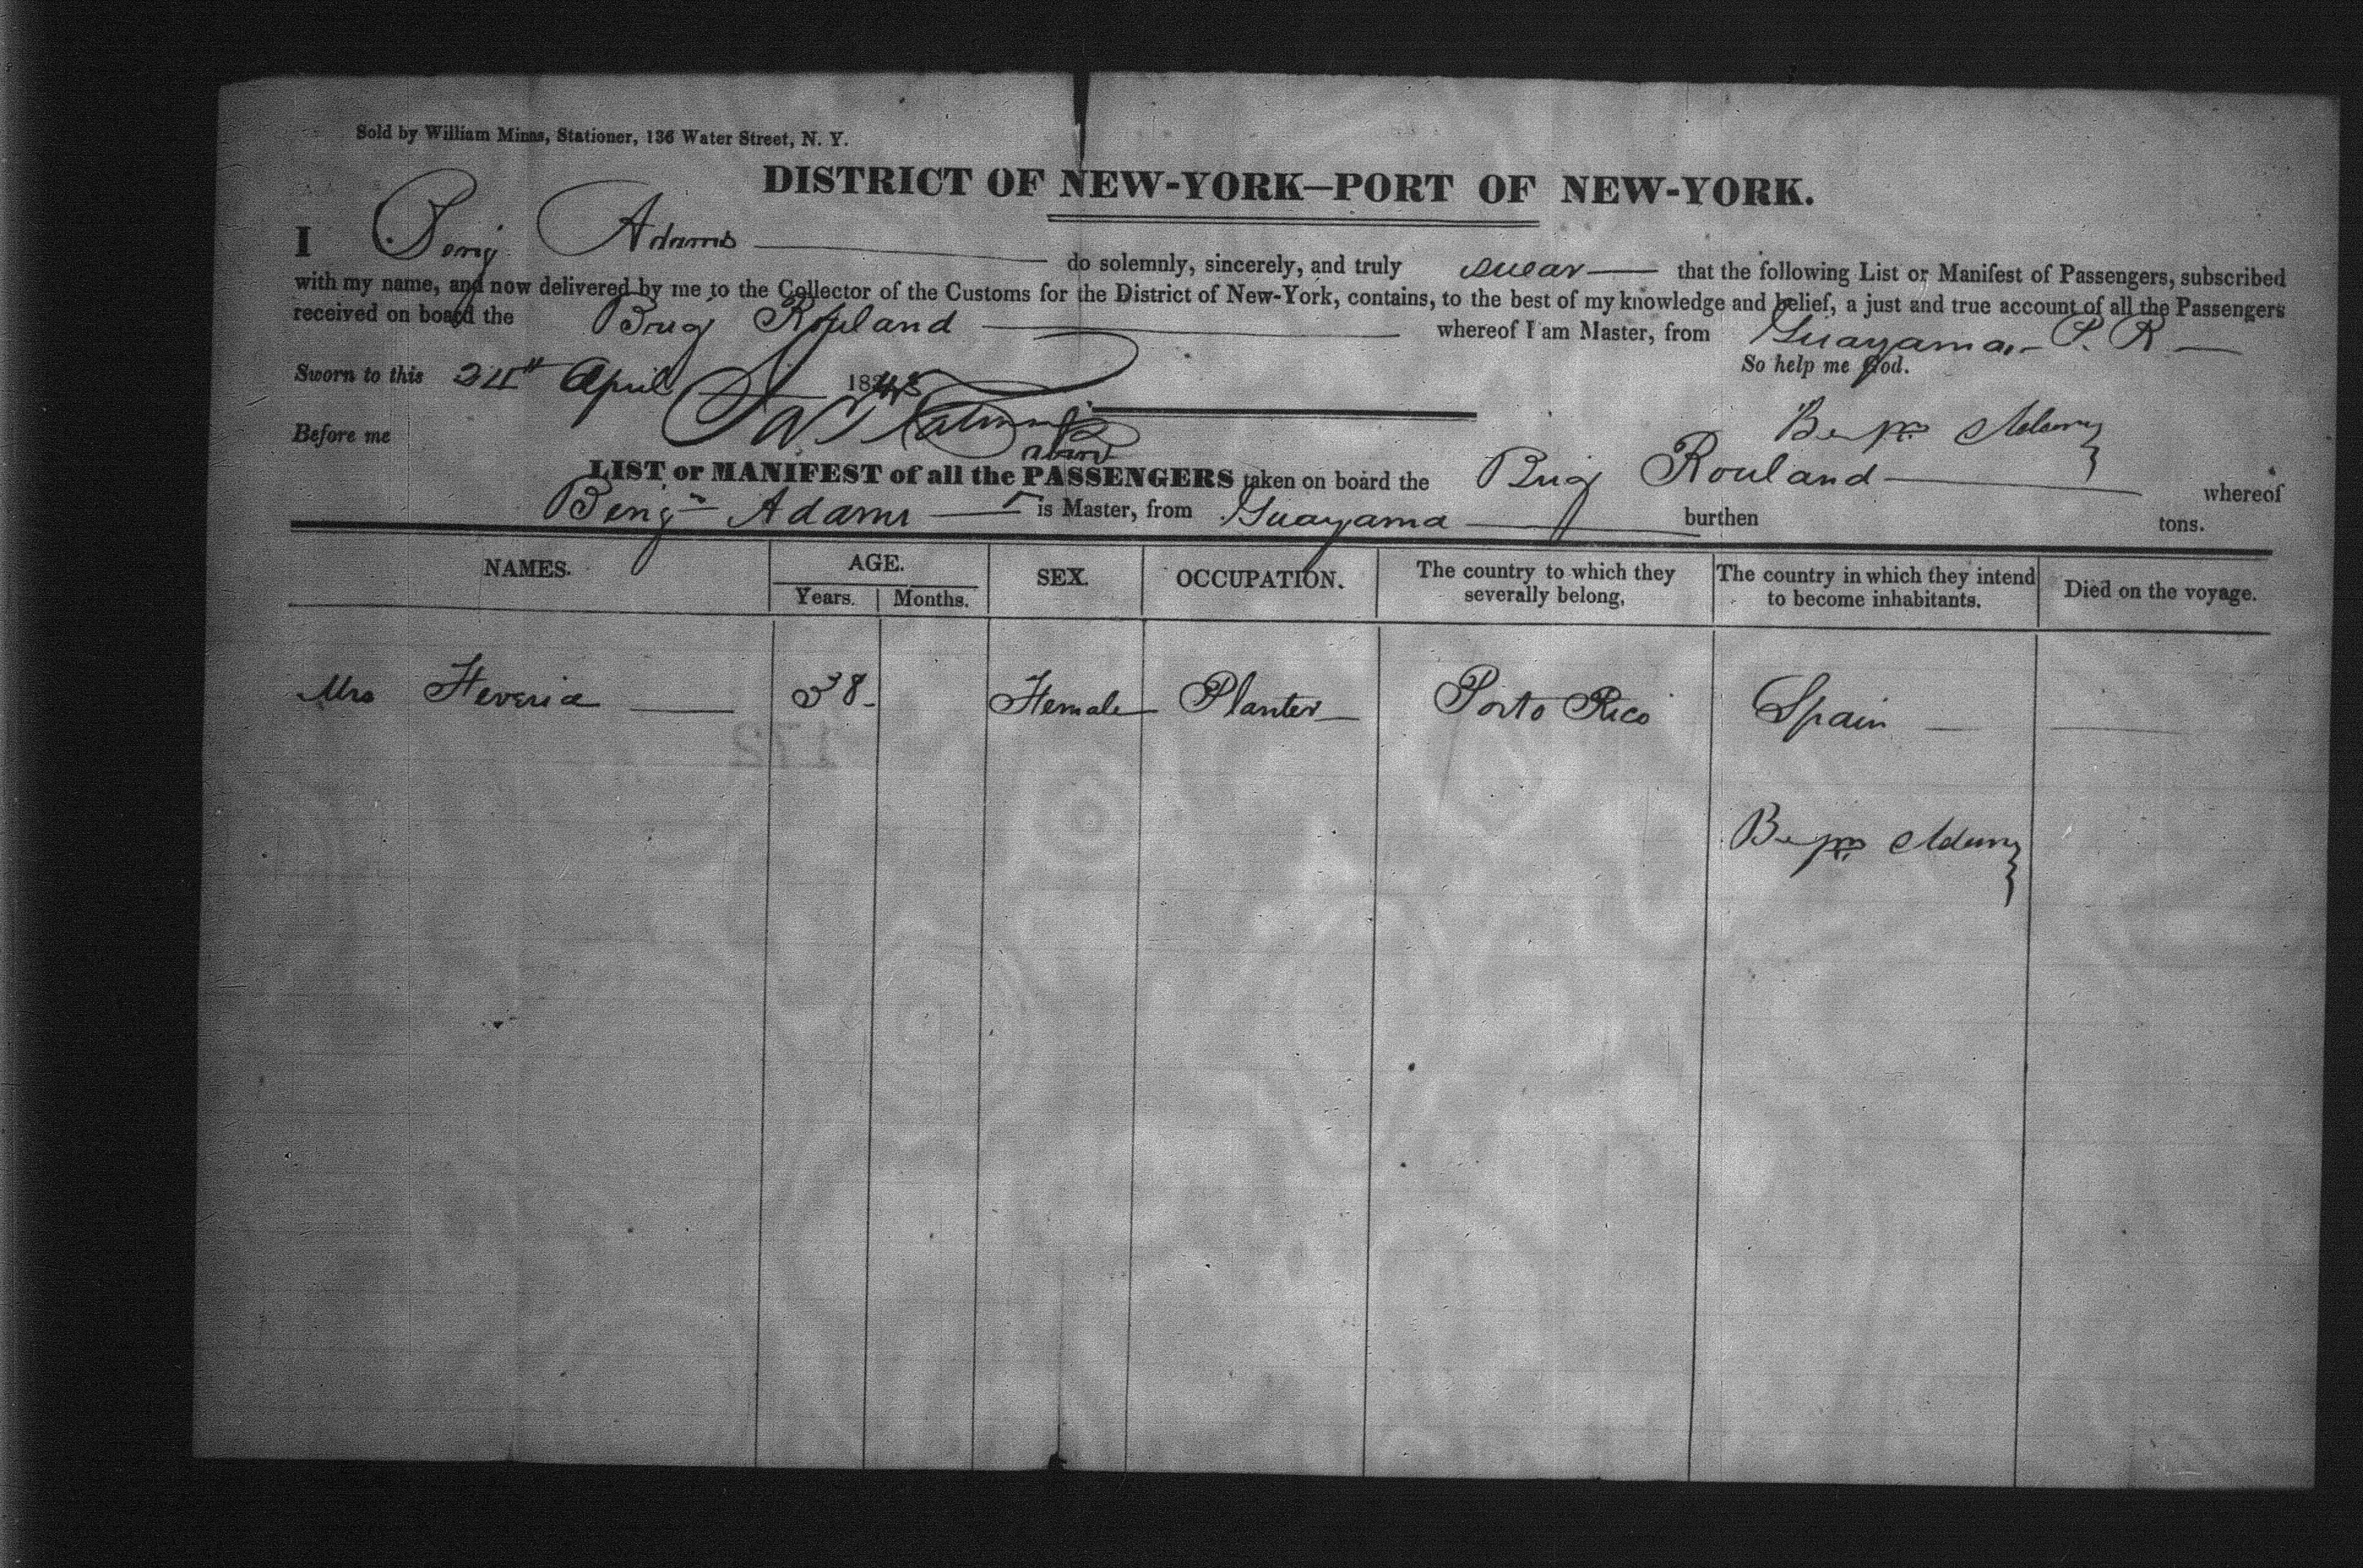 Sold by William Minns, Stationer, 136 Water Street, N. Y.
DISTRICT OF NEW-YORK—PORT OF NEW-YORK.
I Benj Adams do solemnly, sincerely, and truly swear that the following List or Manifest of Passengers, subscribed
with my name, and now delivered by me to the Collector of the Customs for the District of New-York, contains, to the best of my knowledge and belief, a just and true account of all the Passengers
received on board the Brig Rouland whereof I am Master, from Guayama, P. R
Sworn to this 24th April 184 So help me God.
Before me Benjn Adams
LIST or MANIFEST of all the PASSENGERS taken on board the Brig Rouland whereof
Benjn Adams is Master, from Guayama burthen tons.
NAMES. AGE. SEX. OCCUPATION. The country to which they severally belong, The country in which they intend to become inhabitants. Died on the voyage.
Years. Months.
Mrs 38 Female Planter Porto Rico Spain
Benjn Adams
172